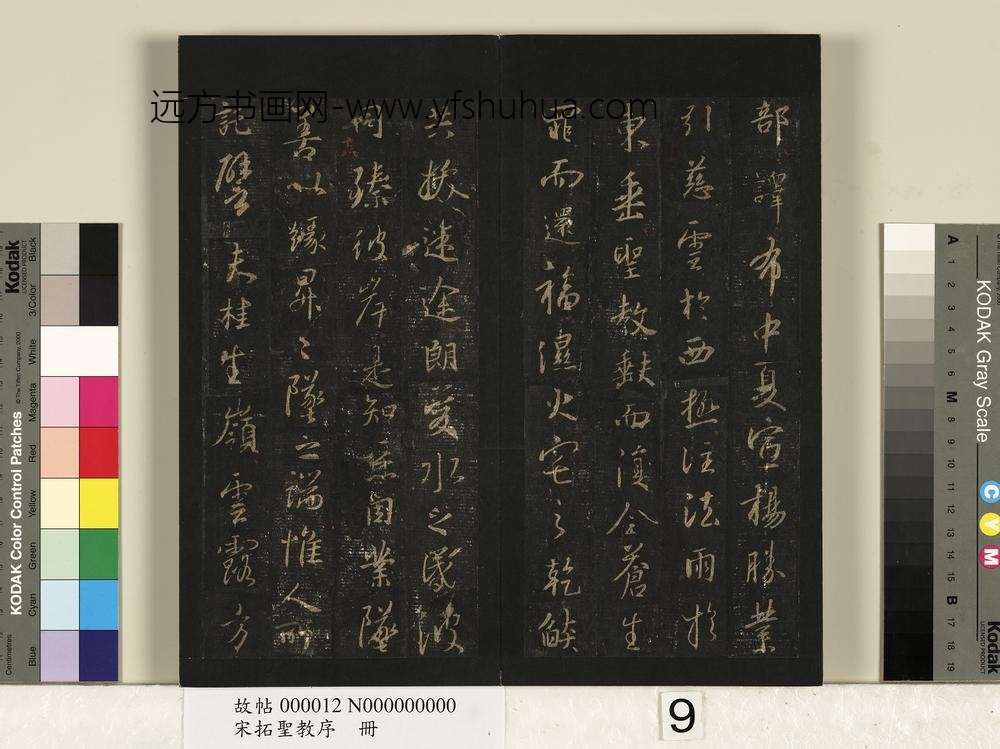 远方书画网-www.yfshuhua.com
部譯布中夏宣揚勝業
引慈雲於西極注法雨於
東垂聖教缺而復全蒼生
罪而還福濕火宅之乾燄
共拔迷途朗愛水之昏波
同臻彼岸是知惡因業墜
善以緣昇〻墜之端惟人所
託譬夫桂生嶺雲露方
故帖 000012 N000000000
宋拓聖教序 冊
9
KODAK Color Control Patches
© The Tiffen Company, 2000
Kodak
LICENSED PRODUCT
Centimetres
Blue
Cyan
Green
Yellow
Red
Magenta
White
3/Color
Black
KODAK Gray Scale
C
Y
M
Kodak
LICENSED PRODUCT
A 1 2 3 4 5 6 M 8 9 10 11 12 13 14 15 B 17 18 19